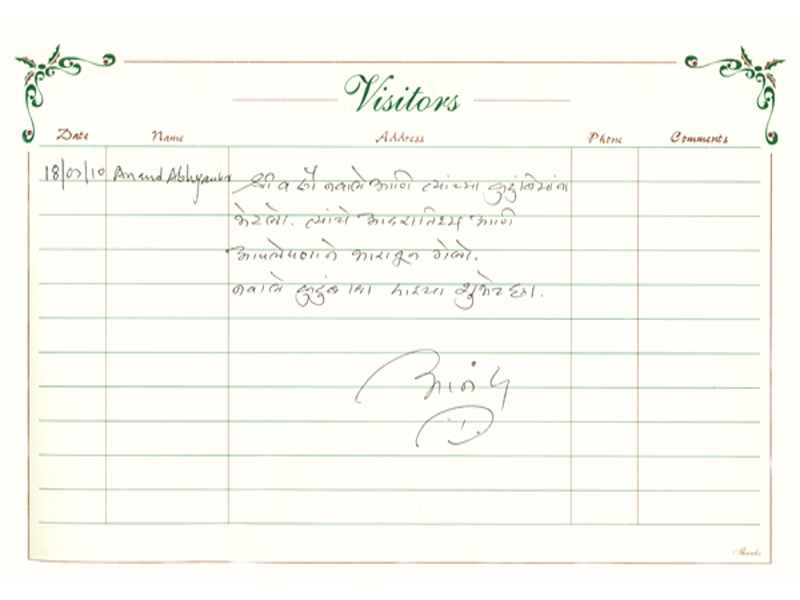 Visitors
Date Name Address Phone Comments
18/07/10 Anand Abhyankar श्री व सौ नवाले आणि त्यांच्या कुटुंबियांना
भेटलो. त्यांचे आदरातिथ्य आणि
आपलेपणाने भारावून गेलो.
नवाले कुटुंबाला माझ्या शुभेच्छा.
आनंद